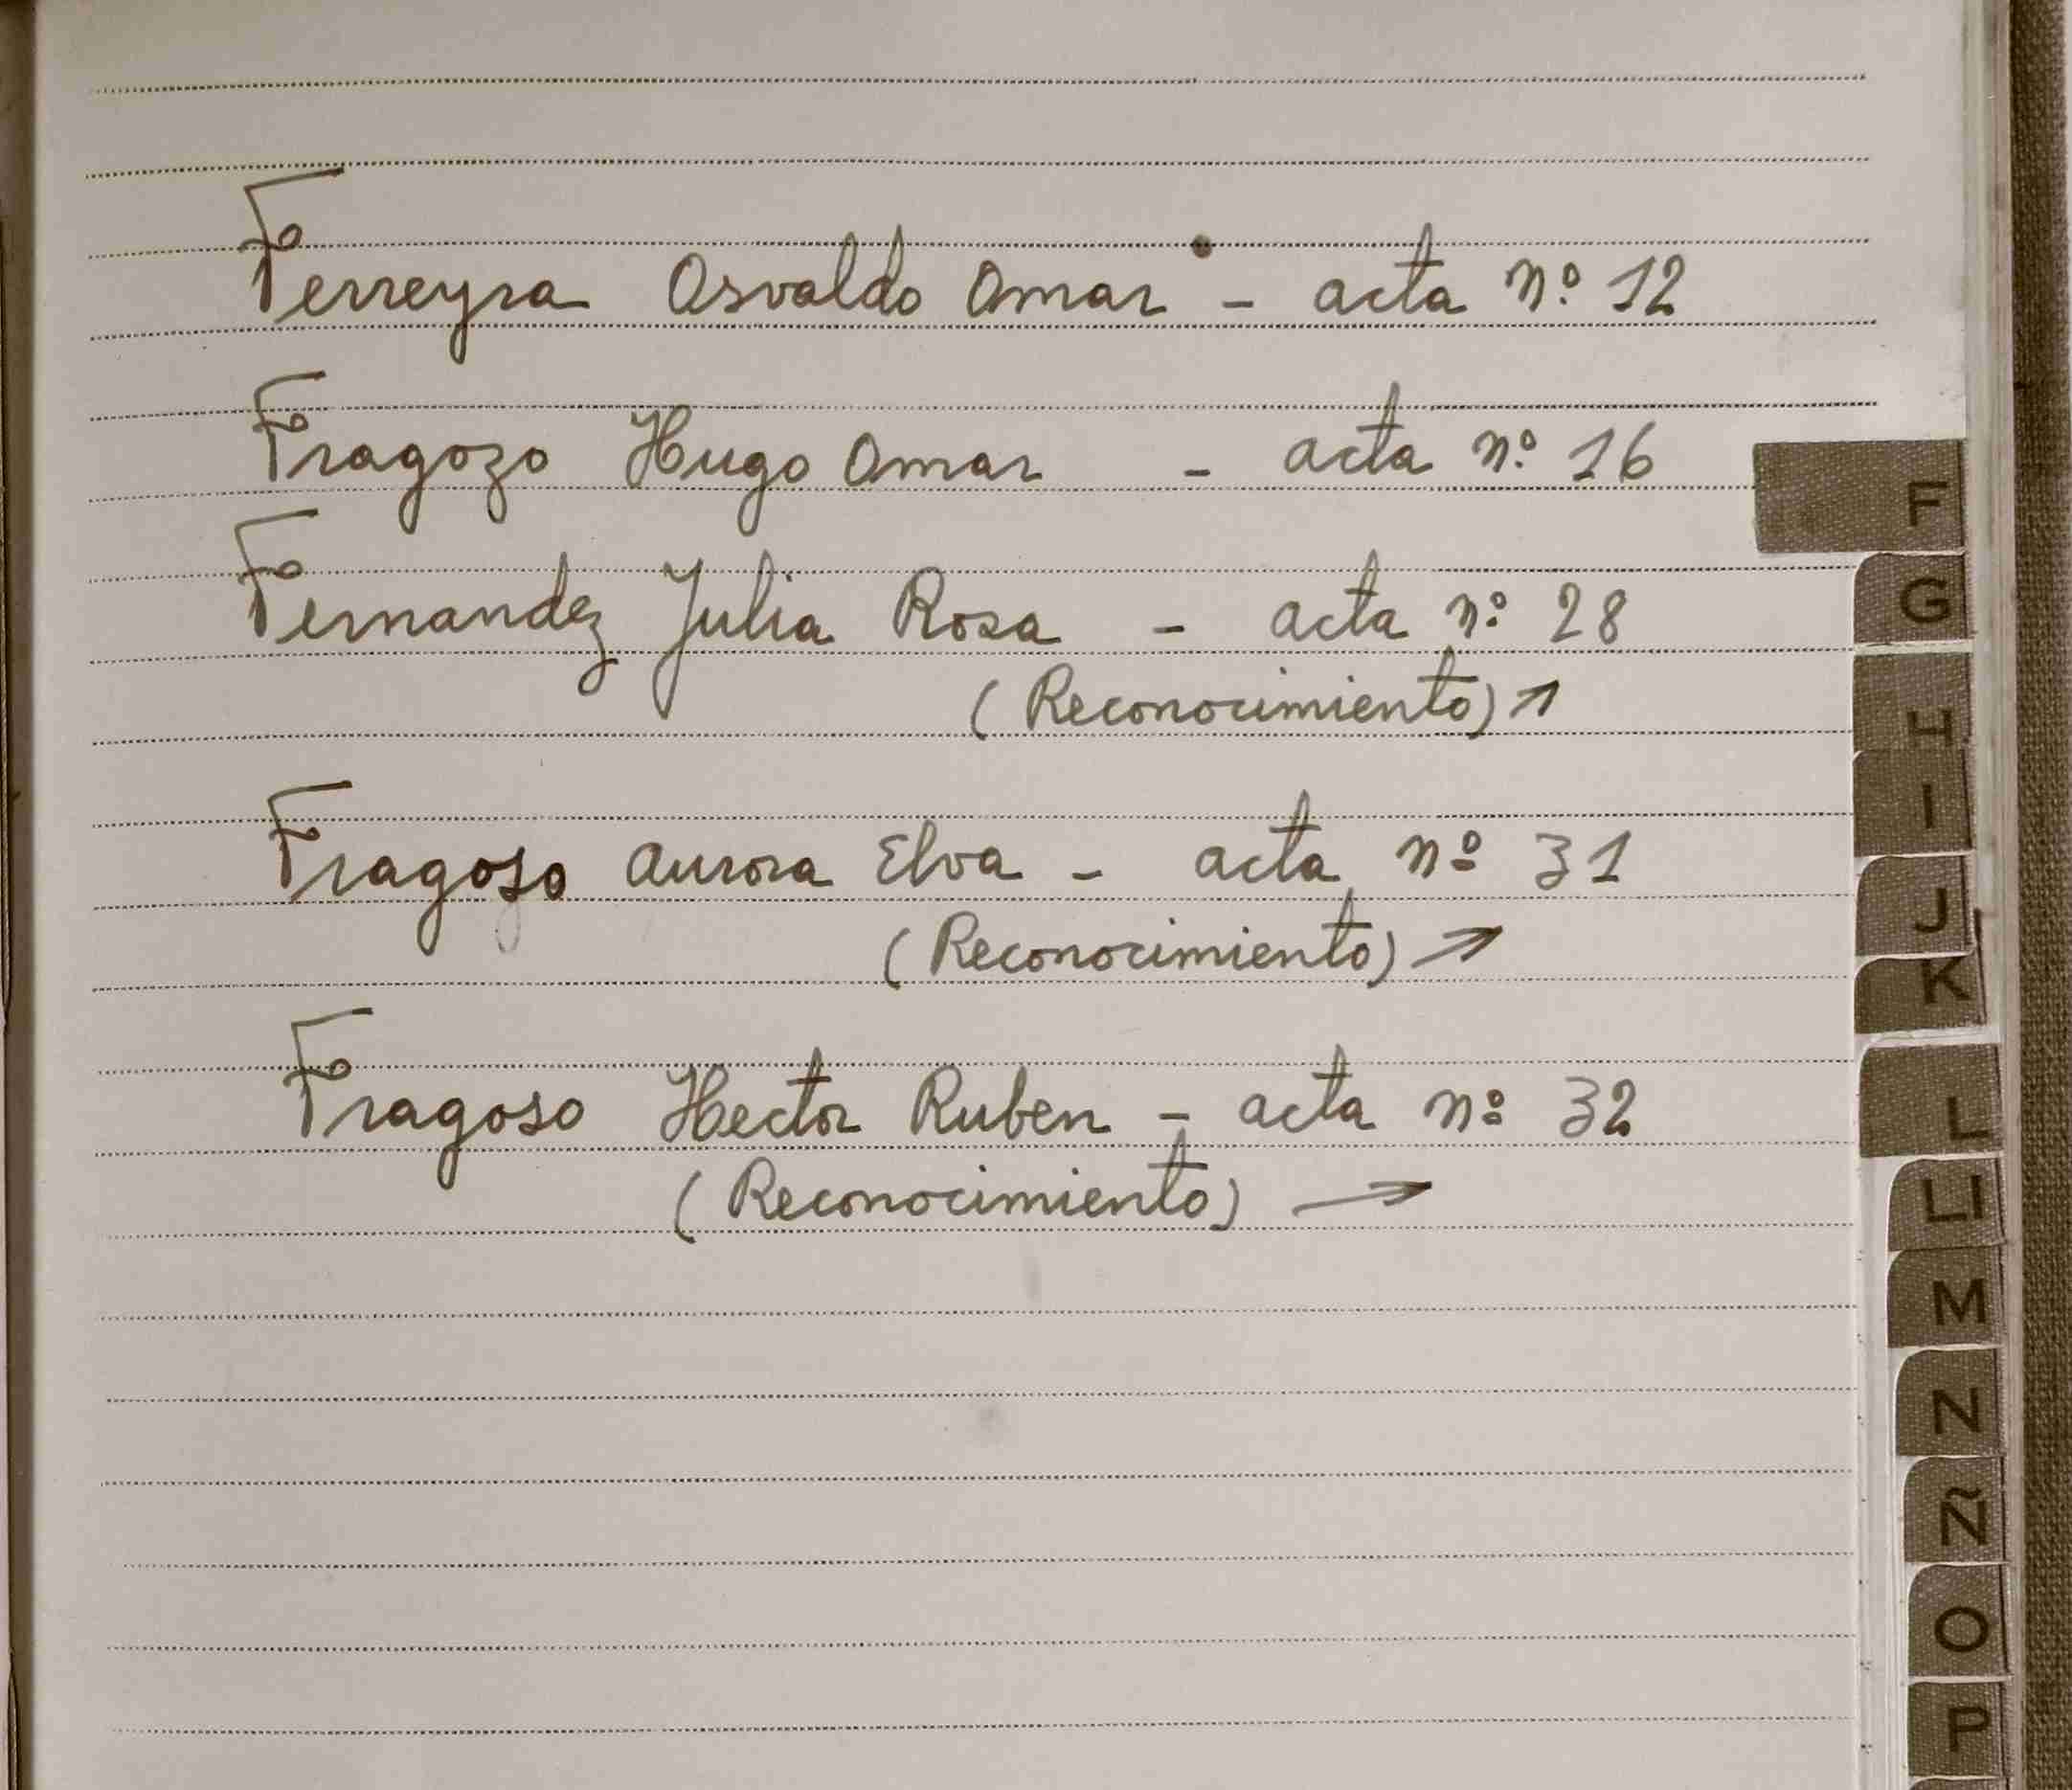 Ferreyra Osvaldo Omar - acta nº 12
Fragozo Hugo Omar - acta nº 16
F
Fernandez Julia Rosa - acta nº 28
G
(Reconocimiento) ↗
H
I
Fragoso Aurora Elva - acta nº 31
J
(Reconocimiento) →
K
Fragoso Hector Ruben - acta nº 32
L
(Reconocimiento) →
Ll
M
N
Ñ
O
P